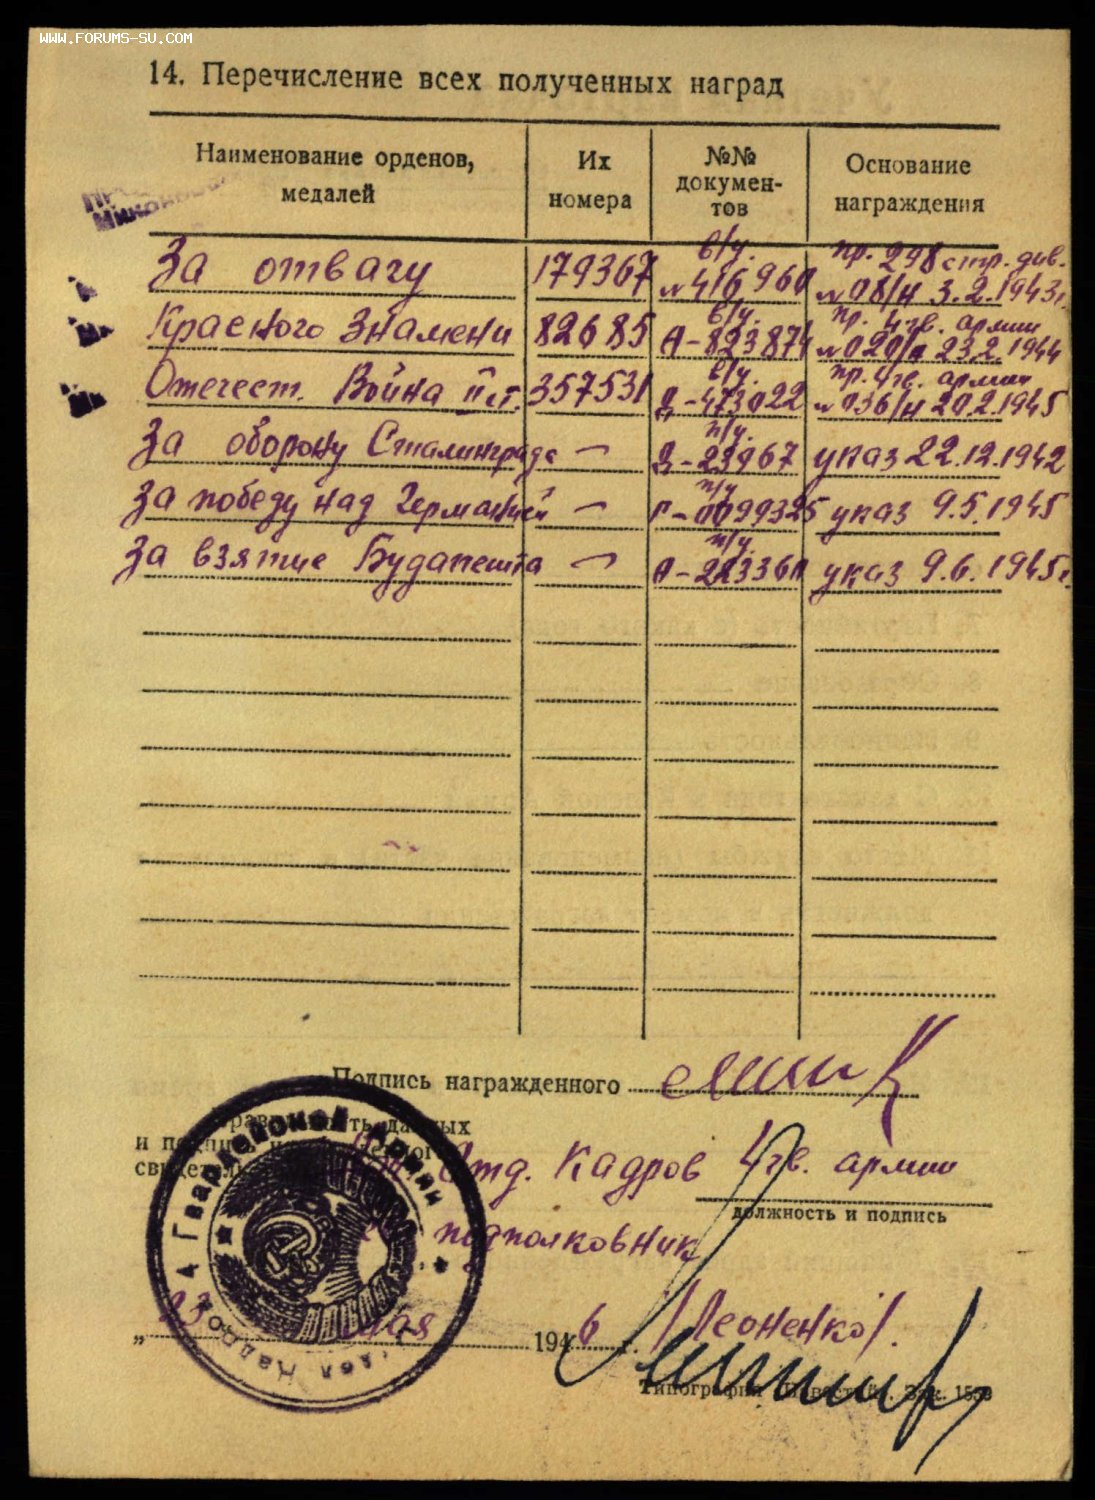 WWW.FORUMS-SU.COM
14. Перечисление всех полученных наград
Наименование орденов, медалей
Их номера
№№ докумен-тов
Основание награждения
За отвагу 179367 в/у. № 416960 пр. 298 стр. див. № 08/н 3.2.1943г.
Красного Знамени 82685 в/у. А-823874 пр. 4 гв. армии № 020/н 23.2.1944
Отечест. Война II ст. 357531 в/у. Д-473022 пр. 4 гв. армии № 036/н 20.2.1945
За оборону Сталинграда — п/у. Д-23967 указ 22.12.1942
За победу над Германией — п/у указ 9.5.1945
За взятие Будапешта — п/у. указ 9.6.1945г.
Подпись награжденного
данных
и
свидетель
Отд. Кадров 4 гв. армии
должность и подпись
подполковник
„ 23 мая 1946 г. /Леоненко/.
Гвардейской Армии
Типография Зак.